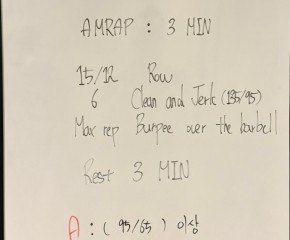 AMRAP : 3 MIN
15/12 Row
6 Clean and Jerk (135/95)
Max rep Burpee over the barbell
Rest 3 MIN
A : ( 95/65 ) 이상